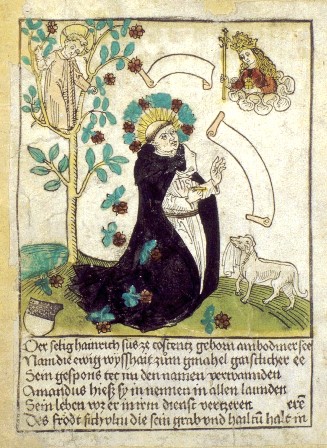 Der selig hainrich süs ze costentz geborn am bodmer see
Nam die ewig wysshait zům gmahel gaistlicher ee
Sein gespons tet nu den namen verwanden
Amandus hieß sy in nennen in allen launden
Sein leben vor er in irm dienst verzeren ere
Des frödt sich ulm die sein grab vnd hailtū halt in